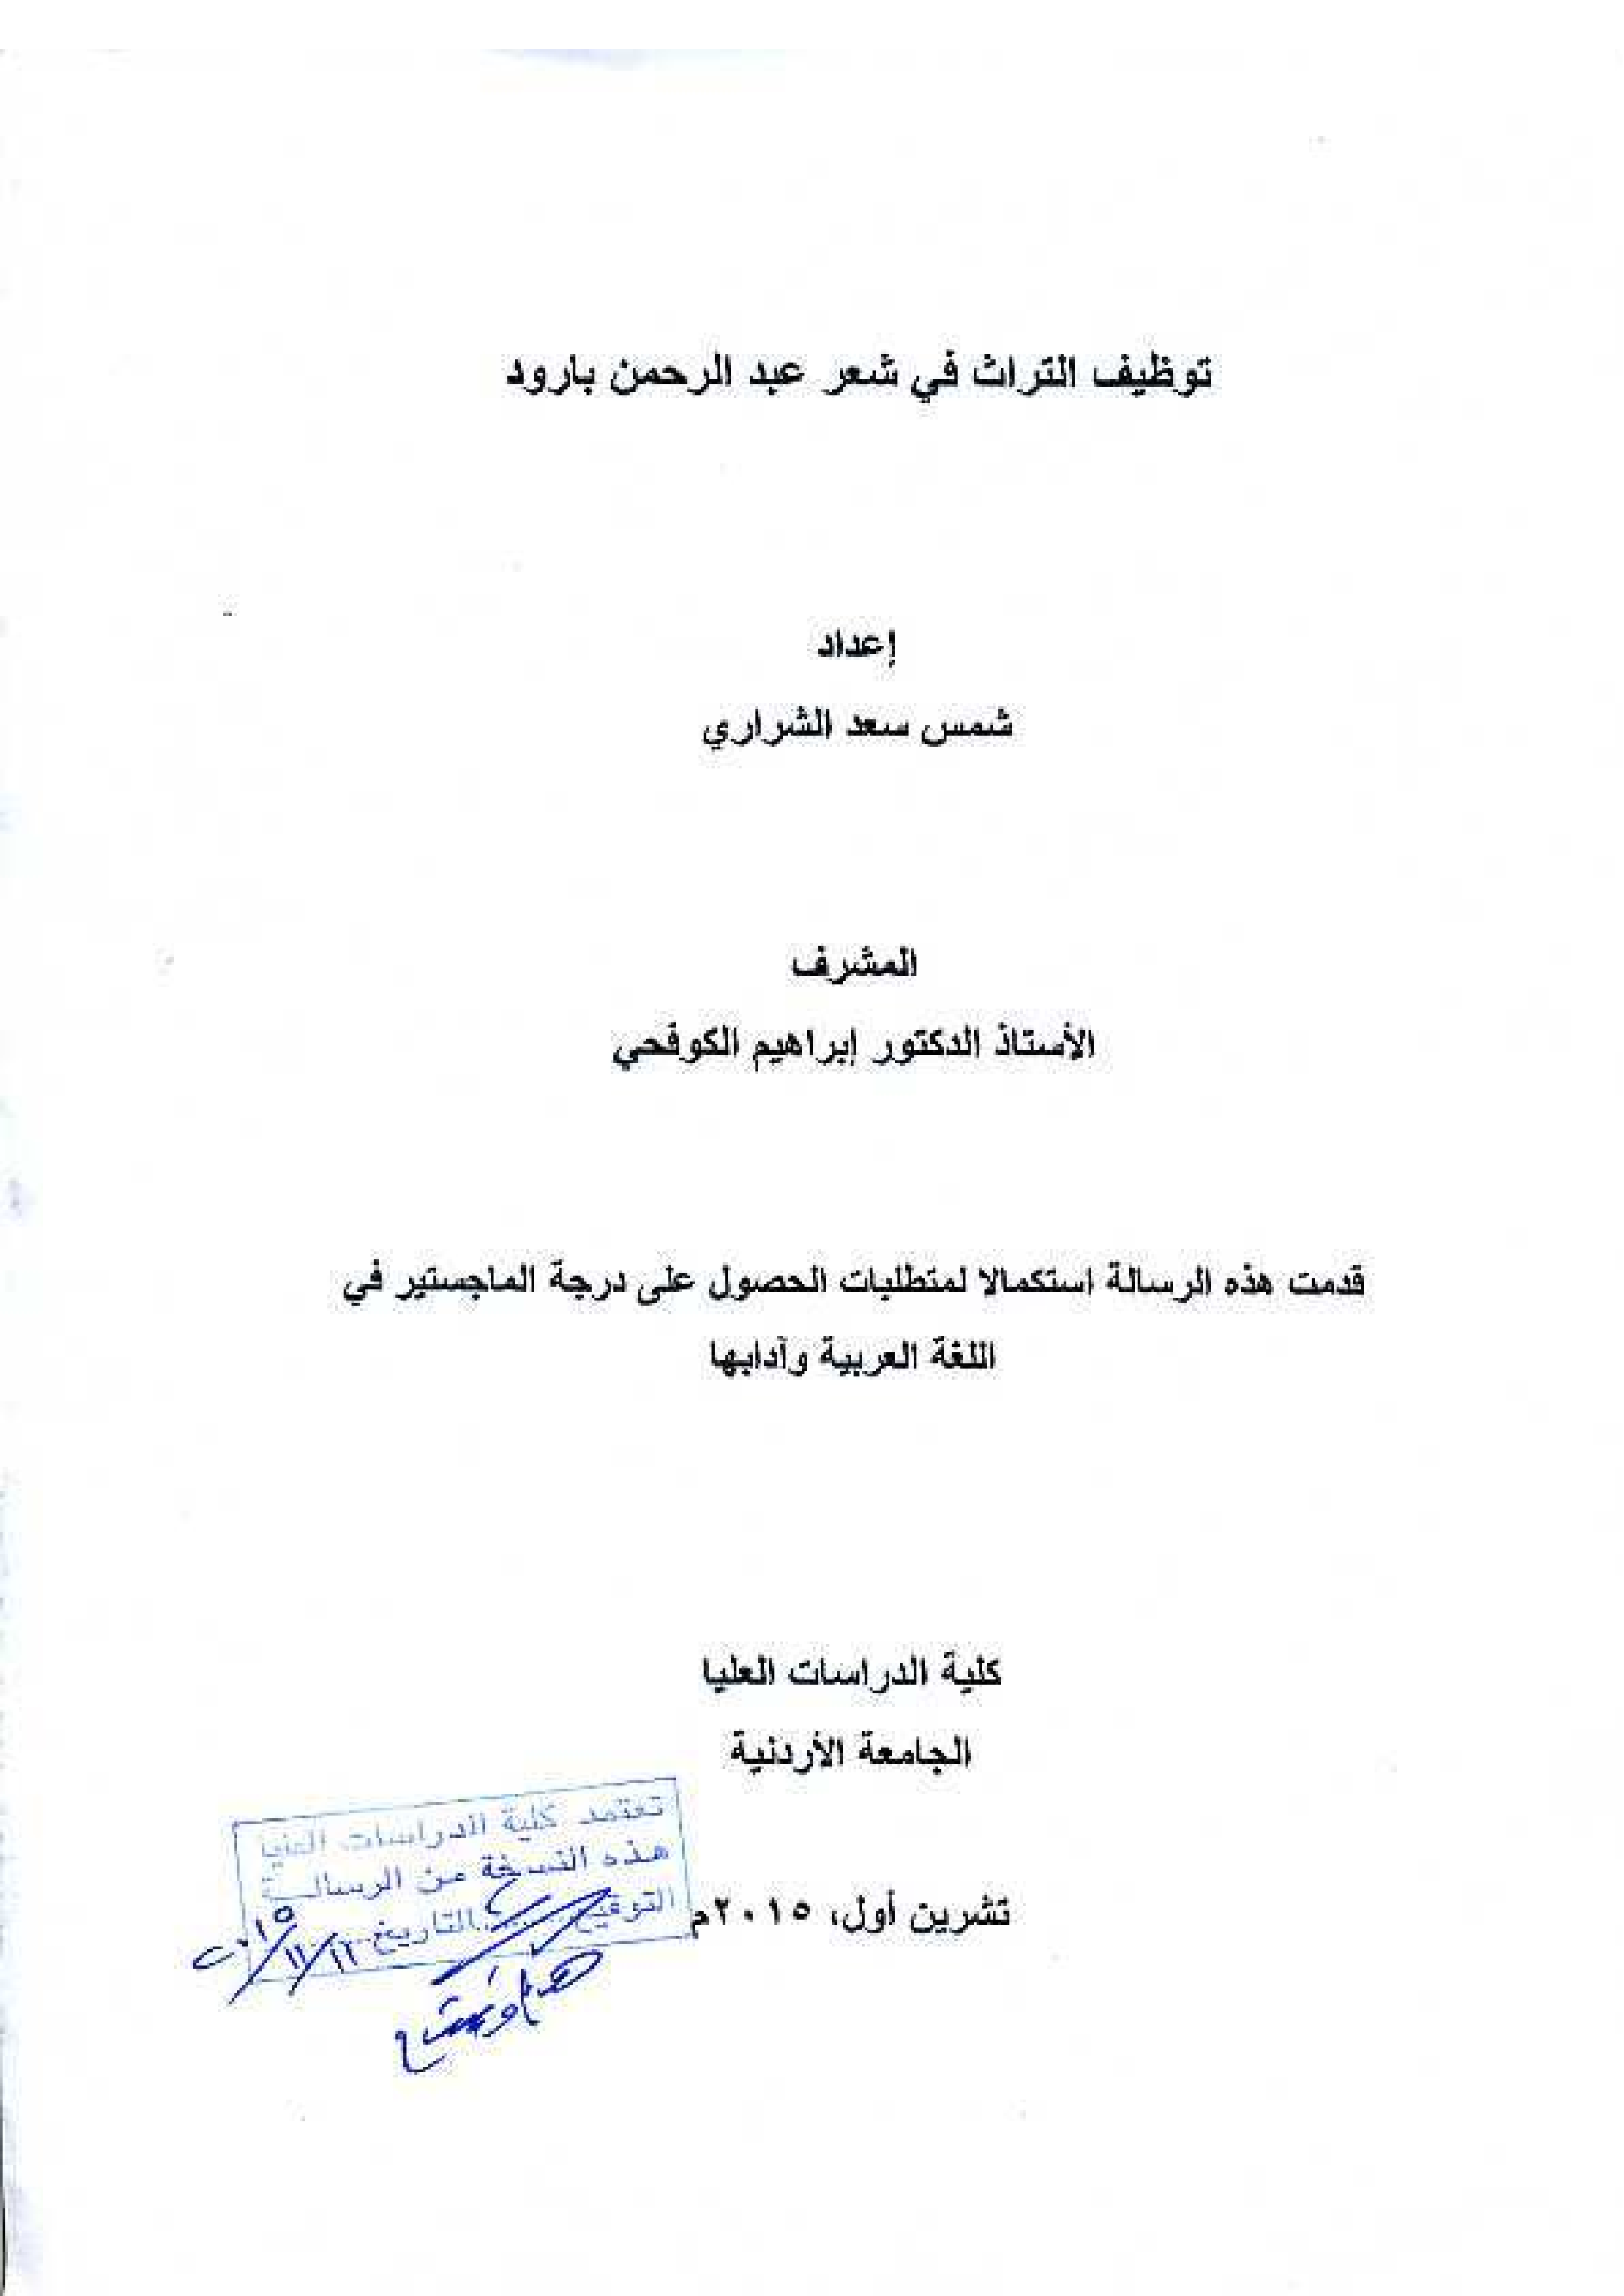 توظيف التراث في شعر عبد الرحمن بارود
إعداد
شمس سعد الشراري
المشرف
الأستاذ الدكتور إبراهيم الكوفحي
قدمت هذه الرسالة استكمالا لمتطلبات الحصول على درجة الماجستير في
اللغة العربية وآدابها
كلية الدراسات العليا
الجامعة الأردنية
تشرين أول، ٢٠١٥م
تعتمد كلية الدراسات العليا
هذه النسخة من الرسالــة
التوقيع التاريخ ١٢/١١/٢٠١٥